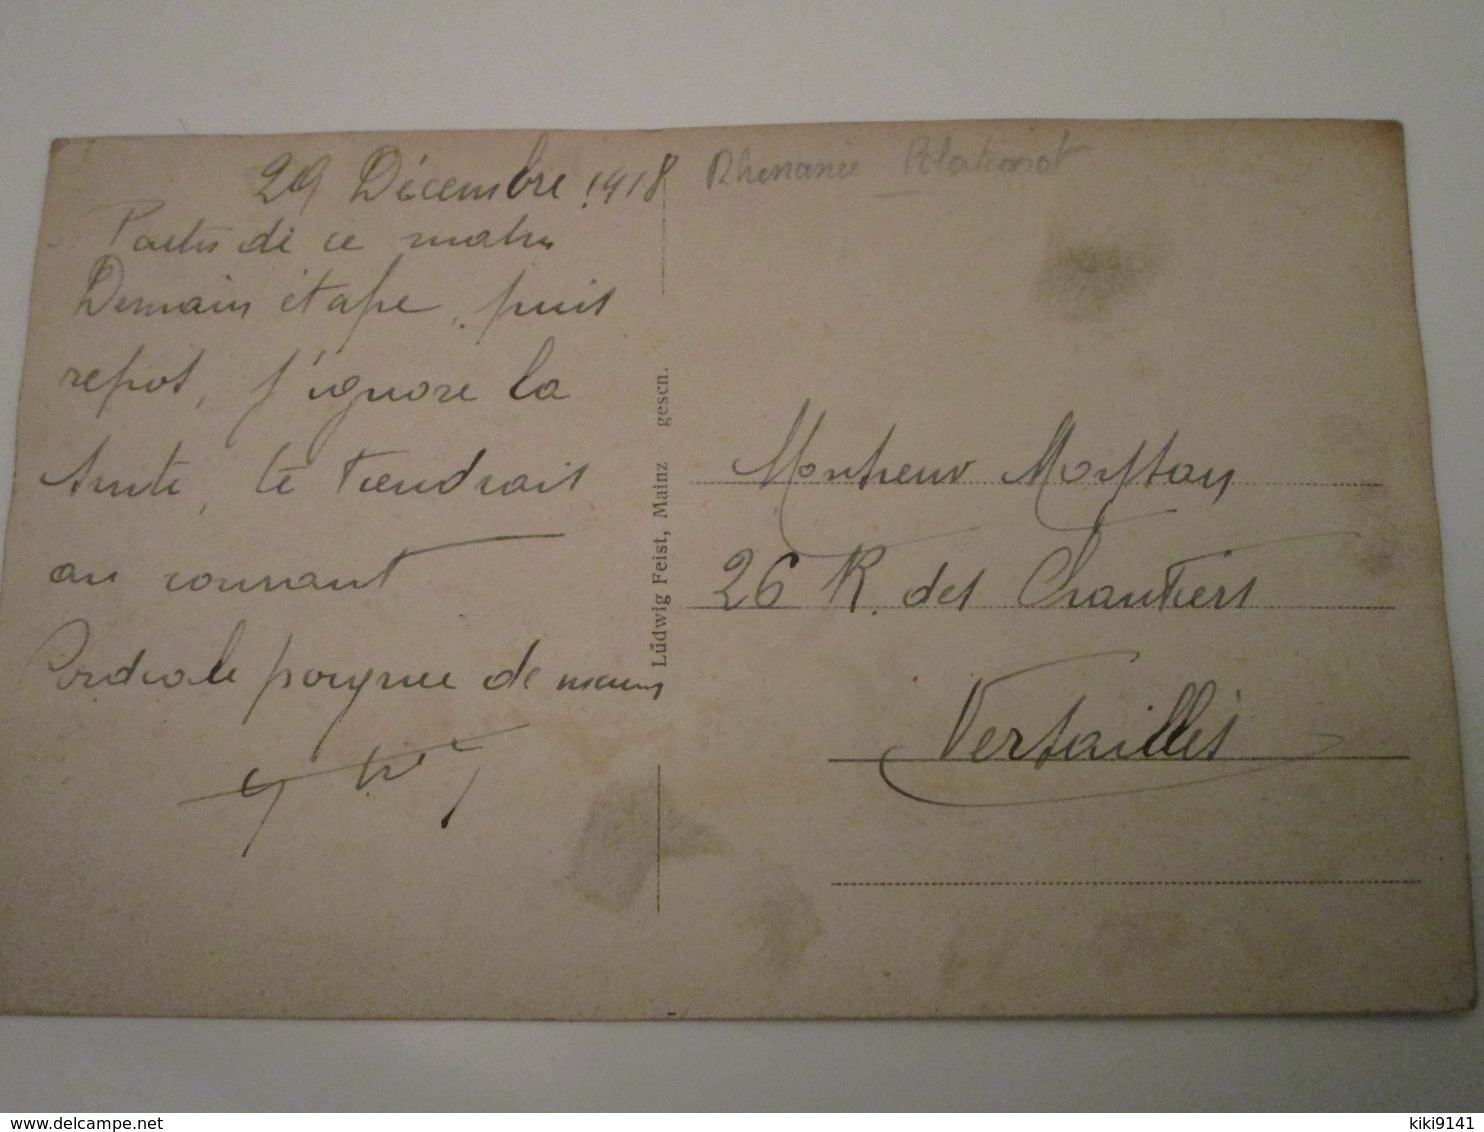 29 Décembre 1918
Partis de ce matin
Demain étape, puis
repos, j'ignore la
suite, te tiendrais
au courant
Cordiale poignée de mains
Rhénanie Palatinat
Ludwig Feist, Mainz gesch.
Monsieur
26 R. des Chantiers
Versailles
delcampe.net
kiki9141